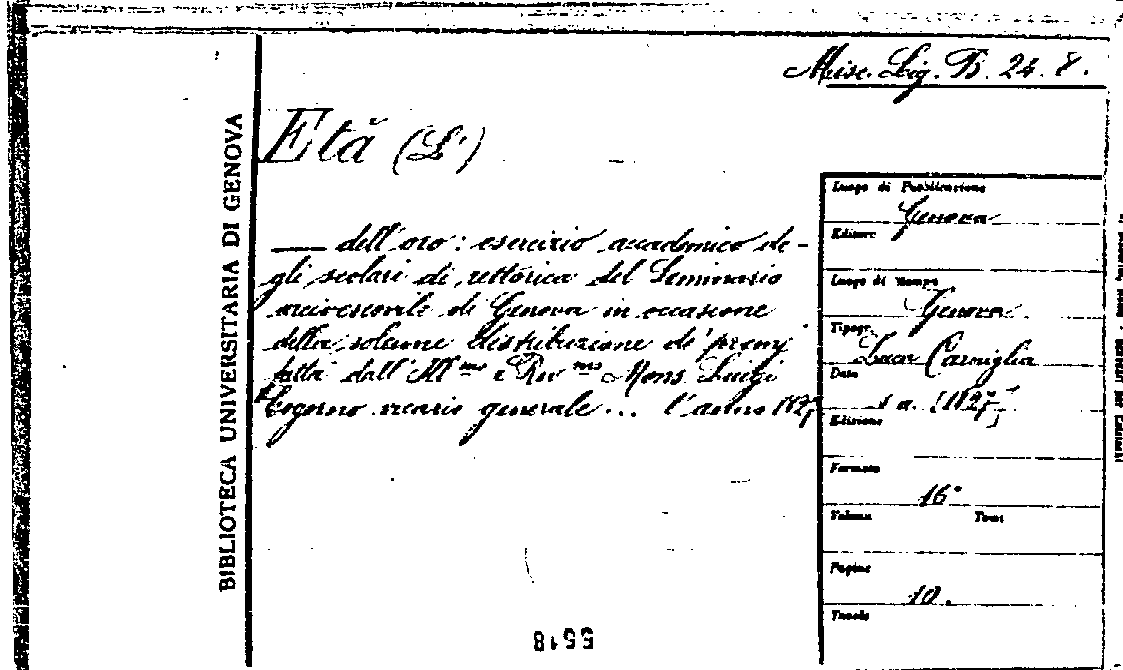 Misc. Lig. B. 24. 8.
BIBLIOTECA UNIVERSITARIA DI GENOVA
Età (L')
— dell'oro: esercizio accademico de-
gli scolari di rettorica del Seminario
arcivescovile di Genova in occasione
della solenne distribuzione de' premj
fatta dall'Ill.mo e Rev.mo Mons. Luigi
vicario generale... l'anno 1827
Luogo di Pubblicazione
Genova
Editore
Luogo di Stampa
Genova
Tipogr.
Luca Carniglia
Data
s. a. (1827)
Edizione
Formato
16°
Volume Tomi
Pagine
10.
Tavole
5518